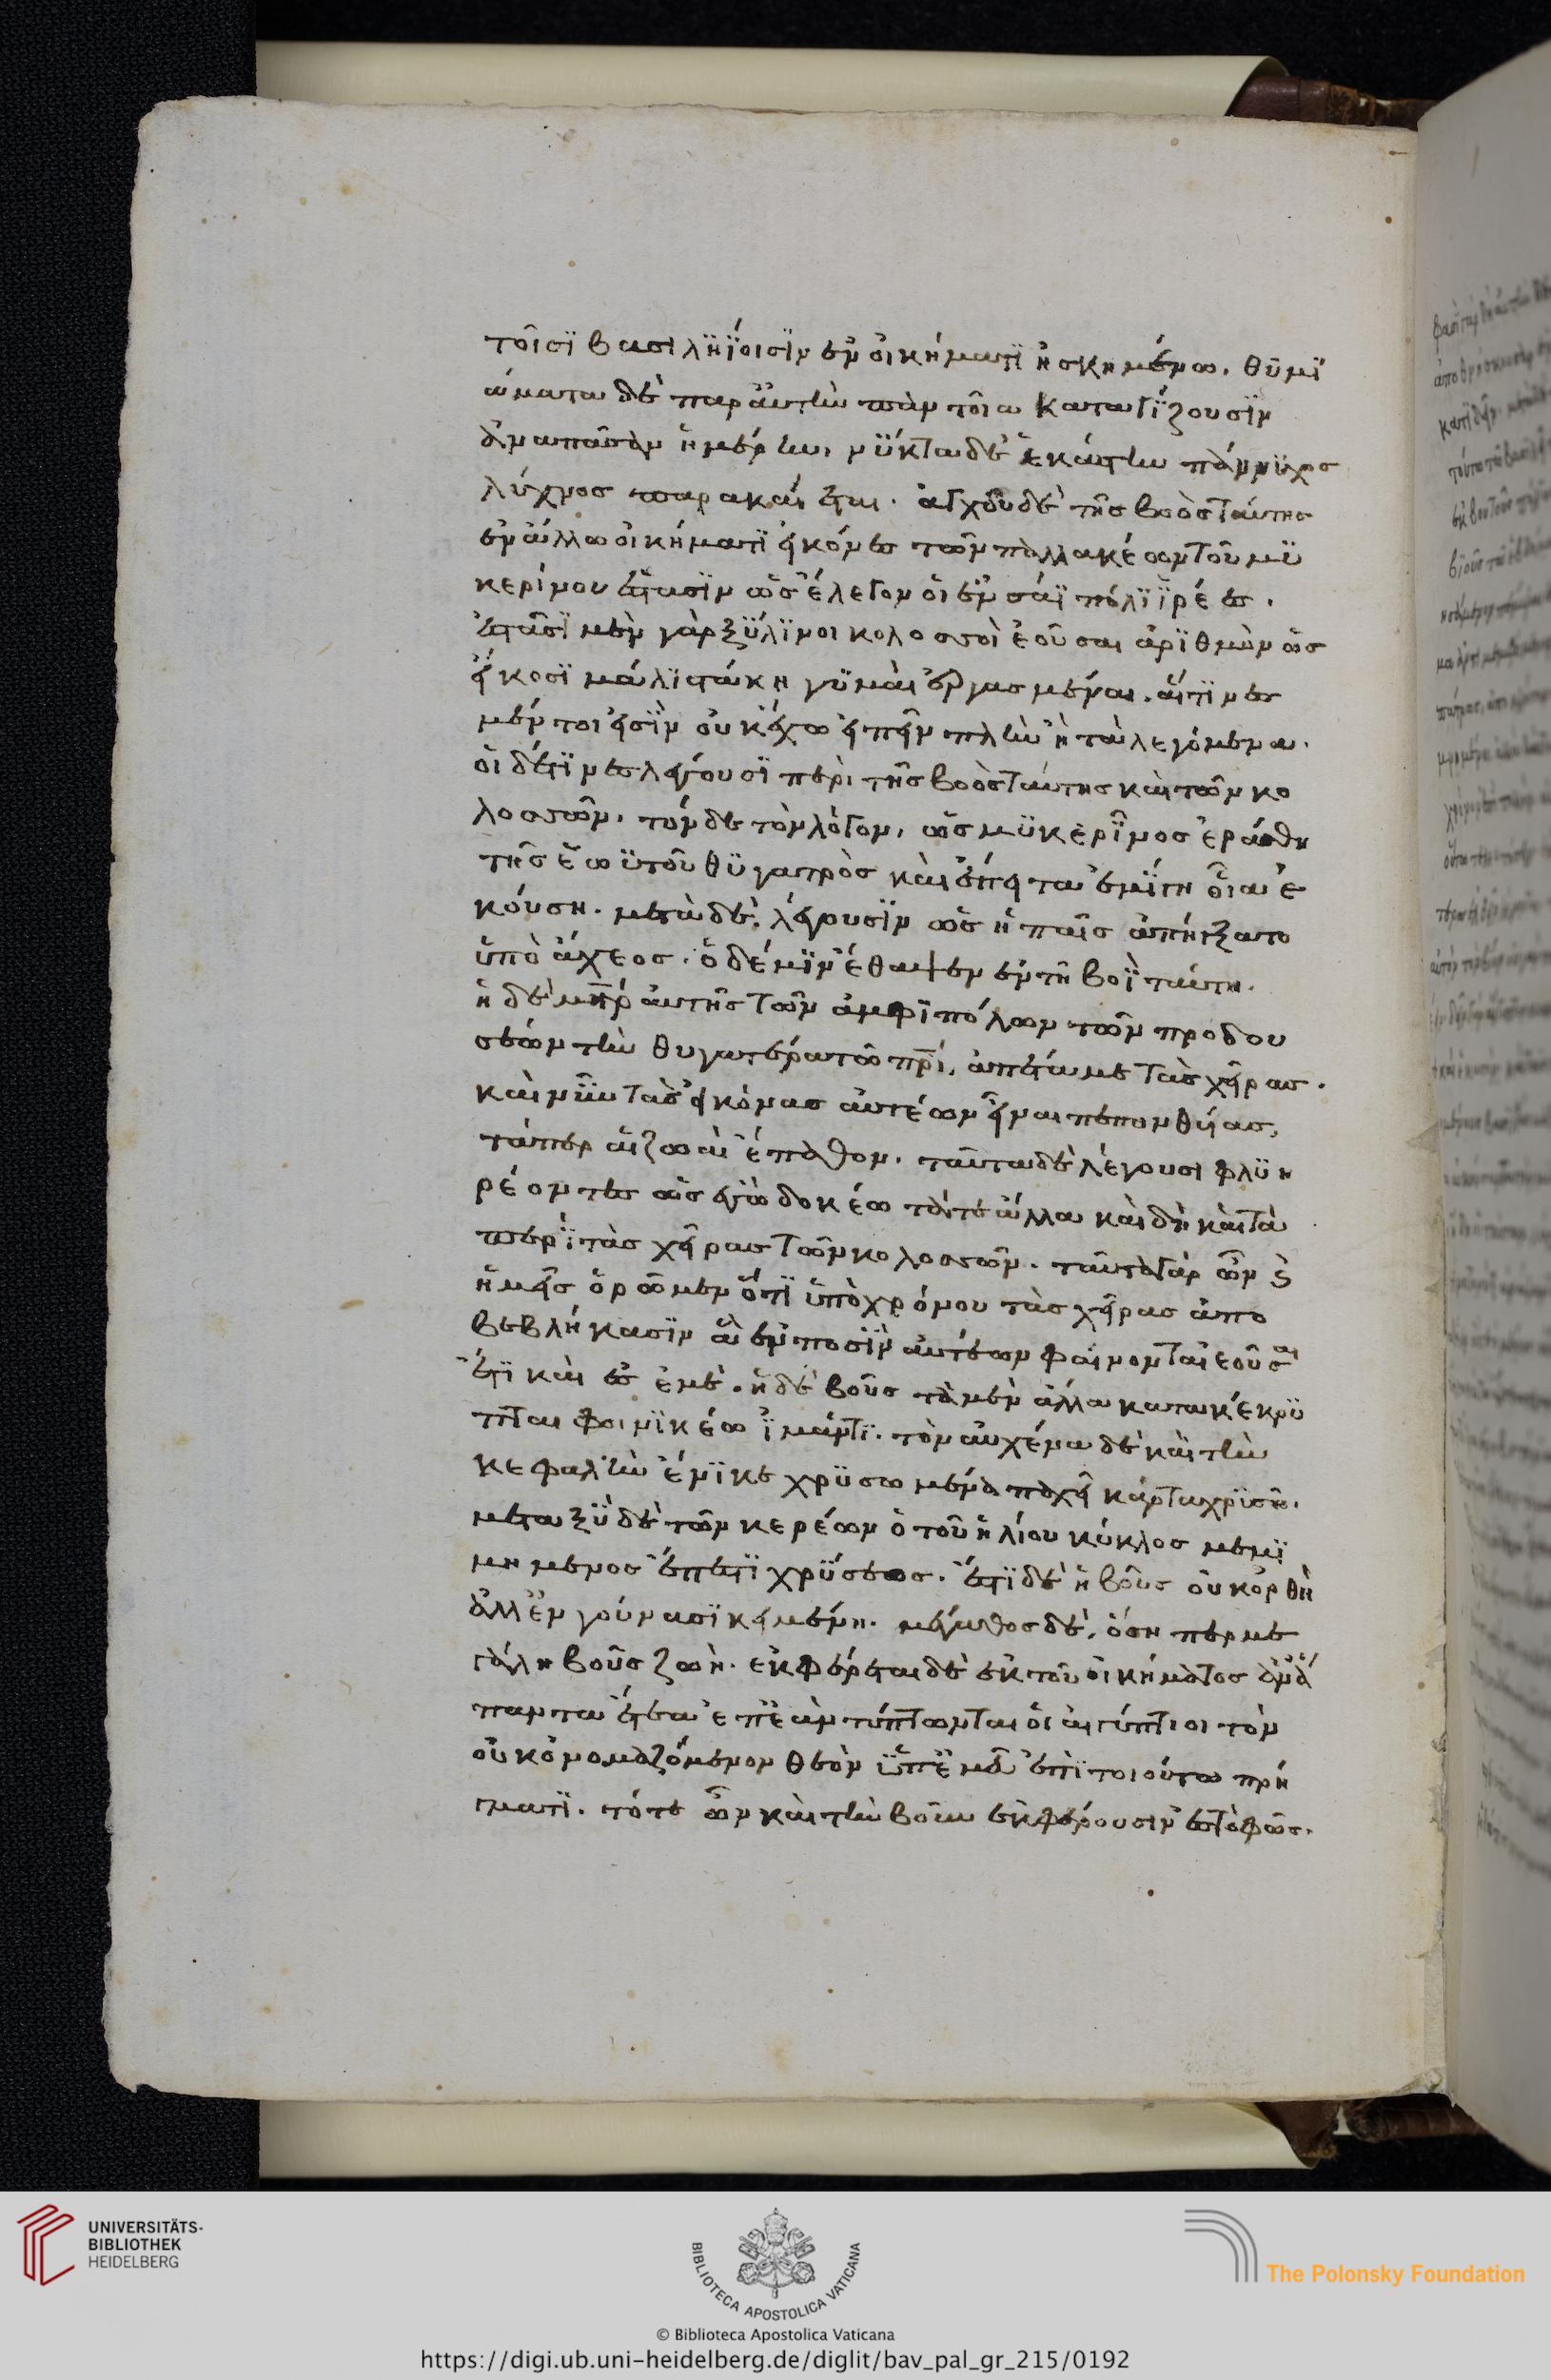 τοῖσϊ βασιλϊηΐοισϊν ἐν οἰκήματϊ ἠσκημένω. θϋμϊ
ώματα δὲ παρ' ἀυτῆ παντοῖα καταγΐζουσϊν
ἀνα πᾶσαν ἡμέρην, νύκτα δὲ ἑκάστην πάννϋχος
λύχνος παρακαίεται. ἀγχοῦ δὲ τῆς βοὸς ταύτης
ἐν ἄλλω οἰκήματϊ εἰκόνες τῶν παλλακέων τοῦ μϋ
κερίνου ἑστᾶσϊν ὡς ἔλεγον οἱ ἐν σάϊ πόλϊ ϊρέες.
ἑστᾶσϊ μὲν γὰρ ξύλϊνοι κολοσσοὶ ἐοῦσαι ἀρϊθμὸν ὡς
εἴκοσϊ μάλϊστάκη γϋμναὶ ἐργασμέναι. αἵτϊνες
μέν τοι εἰσϊν οὐκ ἔχω εἰπεῖν πλὴν ἢ τὰ λεγόμενα.
οἱ δέ τϊνες λέγουσϊ περὶ τῆς βοὸς ταύτης καὶ τῶν κο
λοσσῶν. τόνδε τὸν λόγον, ὡς μϋκερῖνος ἐράσθη
τῆς ἑωϋτοῦ θϋγατρὸς καὶ ἔπειτα ἐμΐγη οἱ ἀε
κούση. μετὰ δὲ, λέγουσϊν ὡς ἡ παῖς ἀπήγξατο
ὑπὸ ἄχεος. ὁ δέ μϊν ἔθαψεν ἐν τῆ βοῒ ταύτη.
ἡ δὲ μηρ ἀυτῆς τῶν ἀμφϊπόλων τῶν προδου
σέων τὴν θυγατέρα τῶ πρί, ἀπέταμε τὰς χεῖρας.
καὶ νῦν τὰς εἰκόνας ἀυτέων εἶναι πεπονθυίας,
τάπερ αἱ ζωαὶ ἔπαθον. ταῦτα δὲ λέγουσι φλϋη
ρέοντες ὡς ἐγὼ δοκέω τά τε ἄλλα καὶ δὴ καὶ τὰ
περϊ τὰς χεῖρας τῶν κολοσσῶν. ταῦτα γὰρ ὦν ϗ
ἡμεῖς ὁρῶμεν ὅτϊ ὑπὸ χρόνου τὰς χεῖρας ἀπο
βεβλήκασϊν αἳ ἐν ποσϊν ἀυτέων φαίνονται ἐοῦσαι
ἔτϊ καὶ ἐς ἐμέ. ἡ δὲ βοῦς τὰ μὲν ἄλλα κατακέκρϋ
πται φοινϊκέω εἵματϊ. τὸν αὐχένα δὲ καὶ τὴν
κεφαλὴν φαίνϊκε χρϋσωμένα παχεῖ κάρτα χρϋσῶ.
μεταξὺ δὲ τῶν κερέων ὁ τοῦ ἡλίου κύκλος μεμϊ
μημένος ἔπεστϊ χρύσεος. ἔστϊ δὲ ἡ βοῦς οὐκ ὀρθὴ
ἀλλ' ἐν γούνασϊ κειμένη. μέγαθος δὲ, ὅση περ με
γάλη βοῦς ζωή. ἐκφέρεται δὲ ἐκ τοῦ οἰκήματος ἀνὰ
πάντα ἔτεα ἐπεὰν τύπτωνται οἱ αἰγύπτιοι τὸν
οὐκ ὀνομαζόμενον θεὸν ὑπ' ἐμεῦ ἐπὶ τοιούτω πρή
γματϊ. τότε ὦν καὶ τὴν βοῦν ἐκφέρουσιν ἐς τὸ φῶς.
UNIVERSITÄTS-
BIBLIOTHEK
HEIDELBERG
BIBLIOTECA APOSTOLICA VATICANA
The Polonsky Foundation
© Biblioteca Apostolica Vaticana
https://digi.ub.uni-heidelberg.de/diglit/bav_pal_gr_215/0192